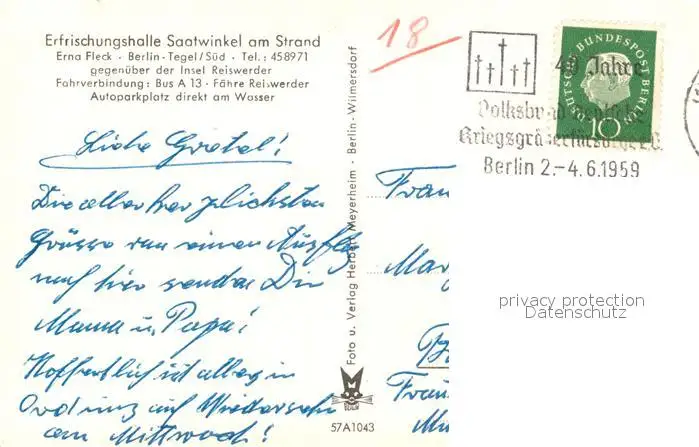 Erfrischungshalle Saatwinkel am Strand
Erna Fleck · Berlin-Tegel/Süd · Tel.: 458971
gegenüber der Insel Reiswerder
Fahrverbindung: Bus A 13 · Fähre Reiswerder
Autoparkplatz direkt am Wasser
Liebe Gretel!
Die allerherzlichsten
Grüsse von einem Ausflug
nach hier senden Dir
Mama u. Papa!
Hoffentlich ist alles in
Ordnung auf Wiedersehn
am Mittwoch!
Foto u. Verlag Herbert Meyerheim · Berlin-Wilmersdorf
BERLIN
57A1043
18
40 Jahre
Volksbund Deutsche
Kriegsgräberfürsorge e.V.
Berlin 2.–4.6.1959
DEUTSCHE BUNDESPOST BERLIN
10
Frau
privacy protection
Datenschutz